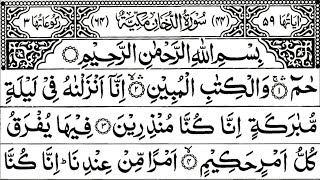 اٰیَاتُهَا ۵۹ (۴۴) سُوْرَةُ الدُّخَانِ مَكِّيَّةٌ (۶۴) رُكُوْعَاتُهَا ۳
بِسْمِ اللّٰهِ الرَّحْمٰنِ الرَّحِيْمِ
حٰمٓ ۱ وَالْكِتٰبِ الْمُبِيْنِ ۲ اِنَّاۤ اَنْزَلْنٰهُ فِیْ لَيْلَةٍ
مُّبٰرَكَةٍ اِنَّا كُنَّا مُنْذِرِيْنَ ۳ فِيْهَا يُفْرَقُ
كُلُّ اَمْرٍ حَكِيْمٍ ۴ اَمْرًا مِّنْ عِنْدِنَا ؕ اِنَّا كُنَّا